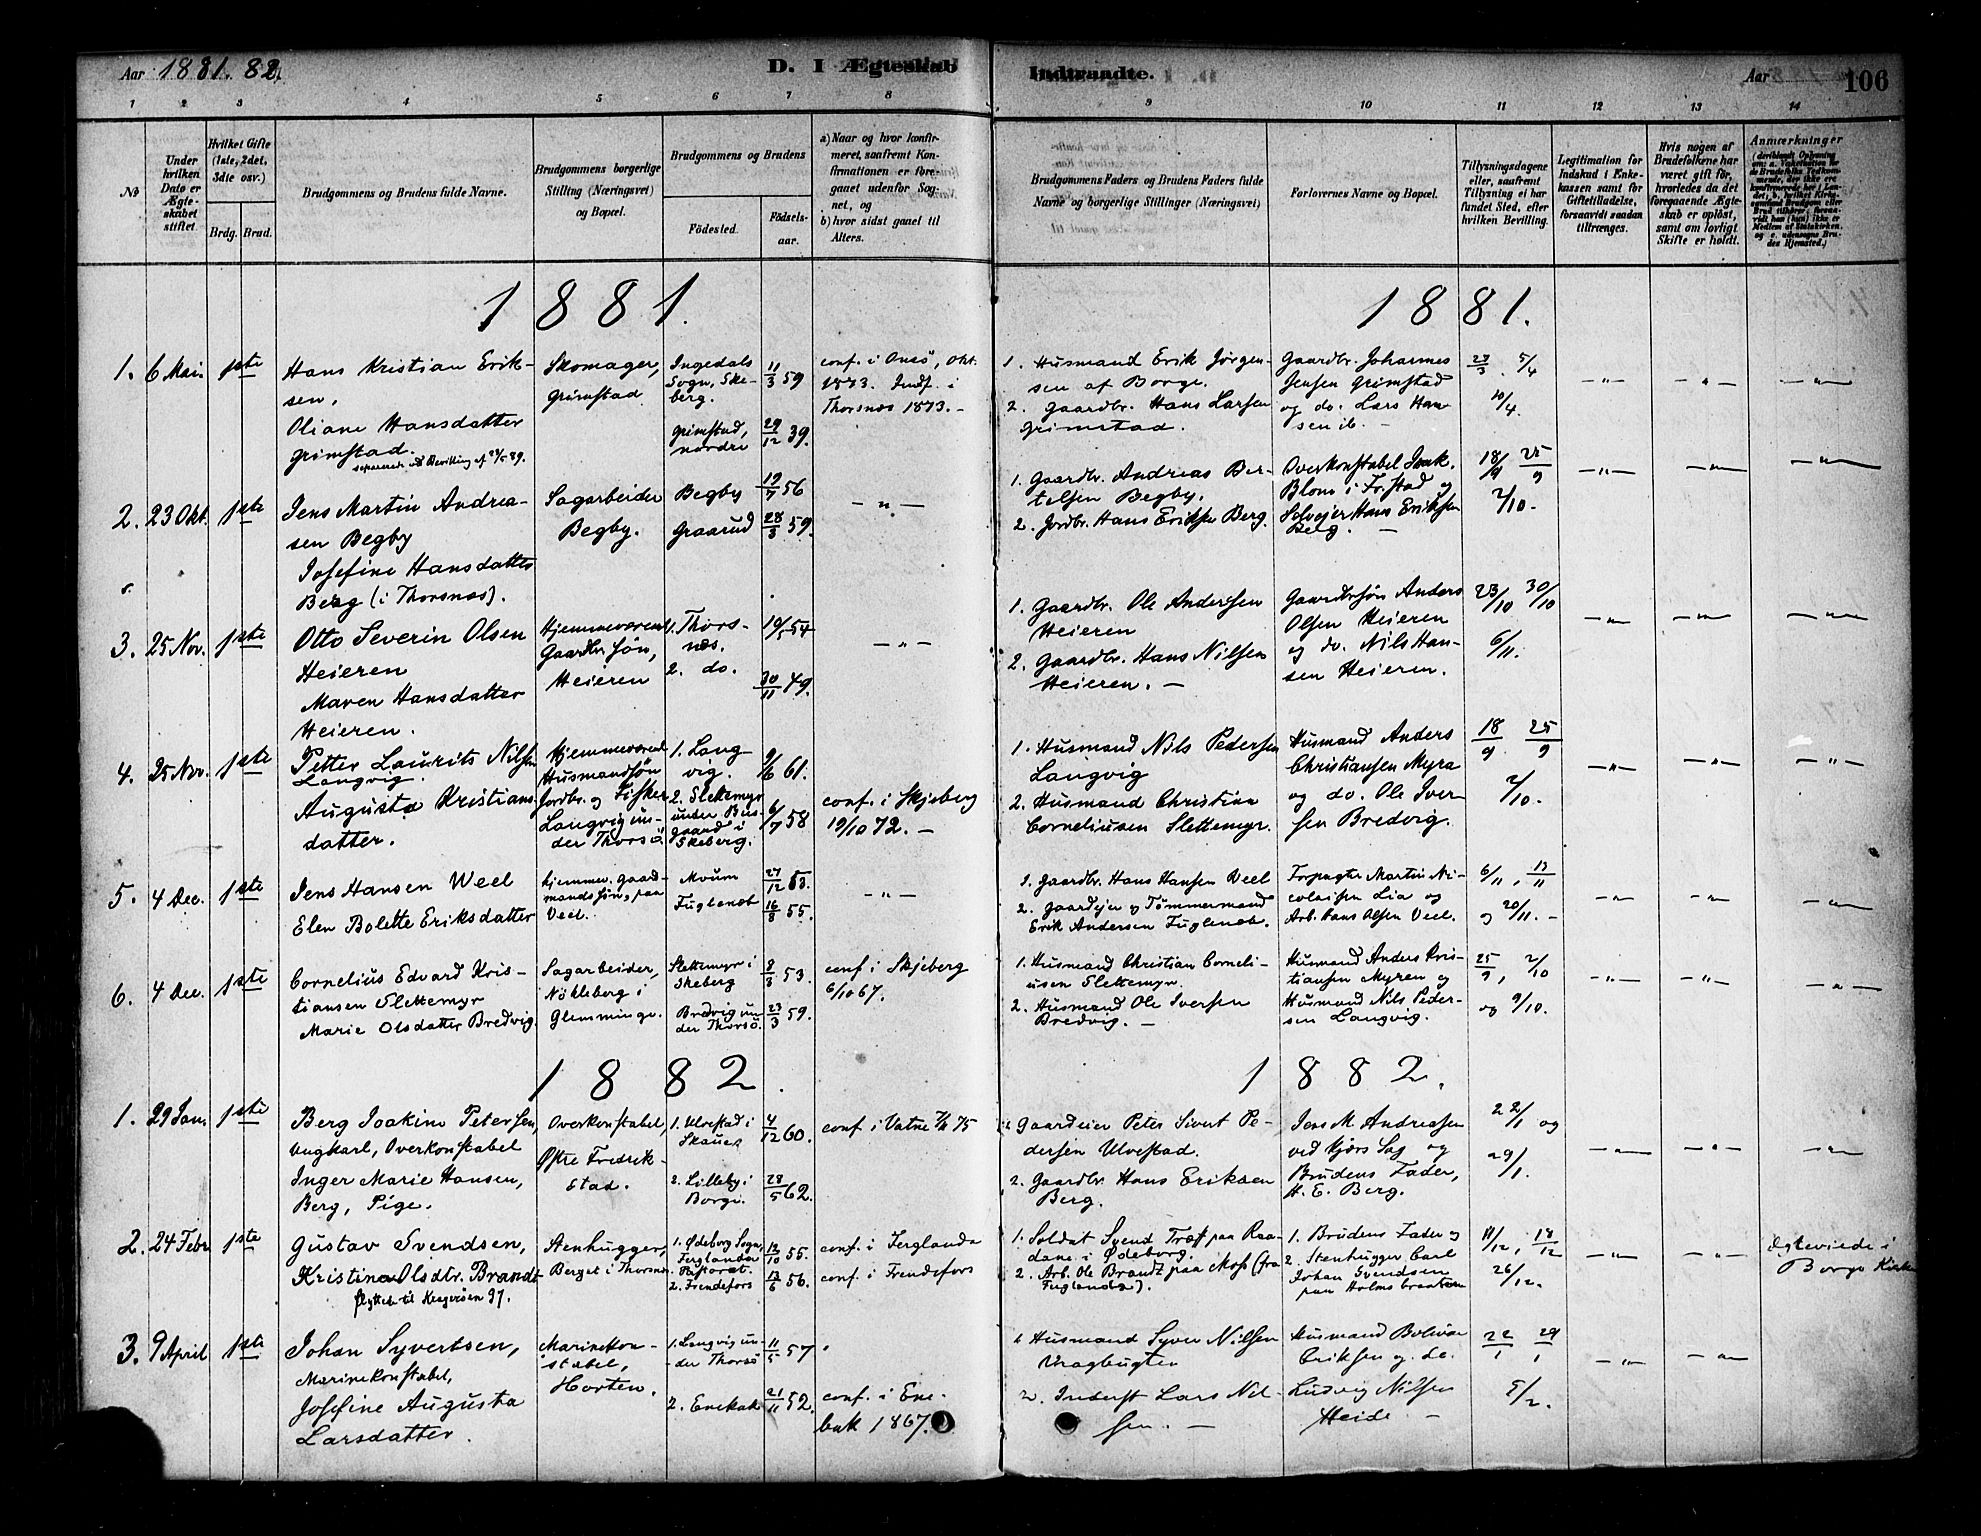 Aar 1881. 82.
D. I Ægteskab
Indtraadte.
Aar
106
1 2 3 4 5 6 7 8 9 10 11 12 13 14
No
Under hvilken Dato er Ægteskabet stiftet.
Hvilket Gifte (1ste, 2det, 3die osv.)
Brdg. Brud.
Brudgommens og Brudens fulde Navne.
Brudgommens borgerlige Stilling (Næringsvei) og Bopæl.
Brudgommens og Brudens
Födested.
Födsels-aar.
a) Naar og hvor konfirmeret, saafremt Konfirmationen er foregaaet udenfor Sognet, og
b) hvor sidst gaaet til Alters.
Brudgommens Faders og Brudens Faders fulde Navne og borgerlige Stillinger (Næringsvei)
Forlovernes Navne og Bopæl.
Tillysningsdagene eller, saafremt Tillysning ei har fundet Sted, efter hvilken Bevilling.
Legitimation for Indskud i Enkekassen samt for Giftetilladelse, forsaavidt saadan tiltrænges.
Hvis nogen af Brudefolkene har været gift för, hvorledes da det foregaaende Ægteskab er oplöst, samt om lovligt Skifte er holdt.
Anmærkninger
1881.
1881.
1. 6 Mai. 1ste
Hans Kristian Erik-
sen,
Oliane Hansdatter
Grimstad.
Skomager,
Grimstad
Ingedals
Sogn, Ske-
berg.
11/3 59
Grimstad,
nordre
29/12 39.
conf. i Onsö, Okt.
1873. Indf. i
Thorsnæs 1873. -
1. Husmand Erik Jörgen-
sen af Borge.
2. Gaardbr. Hans Larsen
Grimstad.
Gaardbr. Johannes
Jensen Grimstad
og do. Lars Han
sen ib. -
27/3. 3/4
10/4.
-"- -"- -"-
2. 23 Okt. 1ste
Jens Martin Andrea-
sen Begby
Josefine Hansdatter
Berg (i Thorsnæs).
Sagarbeider
Begby.
Begby 19/7 56
Graarud 28/3 59.
-"-
1. Gaardbr. Andreas Ber-
telsen Begby.
2. Jordbr. Hans Eriksen Berg.
Overkonstabel Isak
Blom i Fr.stad og
Selveier Hans Eriksen
Berg. -
18/9 25/9
2/10.
-"- -"- -"-
3. 25 Nov. 1ste
Otto Severin Olsen
Heieren
Maren Hansdatter
Heieren.
Hjemmeværende
Gaardbr. sön,
Heieren
1. Thors-
næs.
2. do.
19/5 54
30/11 49.
-"-
1. Gaardbr. Ole Andersen
Heieren
2. Gaardbr. Hans Nilsen
Heieren. -
Gaardbrsön Anders
Olsen Heieren
og do. Nils Han-
sen Heieren.
23/10 30/10
6/11.
-"- -"- -"-
4. 25 Nov. 1ste
Petter Laurits Nilsen
Langvig.
Augusta Kristians-
datter.
Hjemmeværend
Husmandsön
Jordbr. og Fisker
Langvig un-
der Thorsö.
1. Lang-
vig.
2. Slettemyr
under Bus-
gaard i
Skeberg.
9/6 61.
6/7 58
conf. i Skjeberg
19/10 72. -
1. Husmand Nils Pedersen
Langvig
2. Husmand Christian
Corneliusen Slettemyr.
Husmand Anders
Christiansen Myra
og do. Ole Iver-
sen Bredvig.
18/9 25/9
2/10.
-"- -"- -"-
5. 4 Dec. 1ste
Jens Hansen Weel
Elen Bolette Eriksdatter
Hjemmev. Gaard-
mandssön, paa
Veel.
Moum 27/12 53.
Fuglenæb 16/8 55.
-"-
1. Gaardbr. Hans Hansen Veel
2. Gaardeier og Tömmermand
Erik Andersen Fuglenæb.
Forpagter Martin Ni-
colaisen Lia og
Arb. Hans Olsen Veel.
6/11, 13/11
og 20/11. -
-"- -"- -"-
6. 4 Dec. 1ste
Cornelius Edvard Kris-
tiansen Slettemyr
Marie Olsdatter Bredvig.
Sagarbeider,
Nökleberg i
Glemminge.
Slettemyr i
Skeberg
8/8 53.
Bredvig un-
der Thorsö.
23/3 59.
conf. i Skjeberg
6/10 67.
1. Husmand Christian Corneli-
usen Slettemyr.
2. Husmand Ole Iversen
Bredvig. -
Husmand Anders Kris-
tiansen Myren og
Husmand Nils Peder-
sen Langvig.
25/9, 2/10
og 9/10.
-"- -"- -"-
1882.
1882.
1. 29 Jan. 1ste
Berg Joakim Petersen,
Ungkarl, Overkonstabel
Inger Marie Hansen,
Berg, Pige.
Overkonstabel,
Östre Fredrik-
stad.
1. Ulvestad i
4/12 60.
2. Lilleby i
Borge.
28/5 62.
conf. i Vatne 75
1. Gaardeier Peter Sivert Pe-
dersen Ulvestad.
2. Gaardbr. Hans Eriksen
Berg.
Jens M. Andreasen
ved Kjærs Sag og
Brudens Fader,
H. E. Berg.
22/1 og
29/1.
-"- -"- -"-
2. 24 Febr. 1ste
Gustav Svendsen,
Kristina Olsdtr. Brandt
flyttede til Kragerøen 97.
Stenhugger,
Berget i Thorsnæs
1. Ødeborg Sogn,
Ferglanda
Pastorat.
2. Frendefors
12/10 55.
13/6 56.
conf. i Ferglanda
conf. i Frendefors
1. Soldat Svend Træff paa Raa-
dane i Ødeborg.
2. Arb. Ole Brandt paa Moss (fra
Ferglanda).
1. Brudens Fader og
2. Stenhugger Carl
Johan Svendsen
paa Holmsbraaten
11/12, 18/12
26/12.
-"- -"-
Ægteviede i
Borge Kirke
3. 9 April 1ste
Johan Syvertsen,
Marinekonstabel,
Josefine Augusta
Larsdatter.
Marinekon-
stabel,
Horten.
1. Langvig un-
der Thorsö
11/5 57
2. Enebak 21/11 52.
conf. i Ene-
bak 1867.
1. Husmand Syver Nilsen
Vragbugten
2. Inderst Lars Nil-
sen. -
Husmand Bolivar
Eriksen og do.
Ludvig Nilsen
Heide -
22/1 29/1
5/2.
-"- -"-